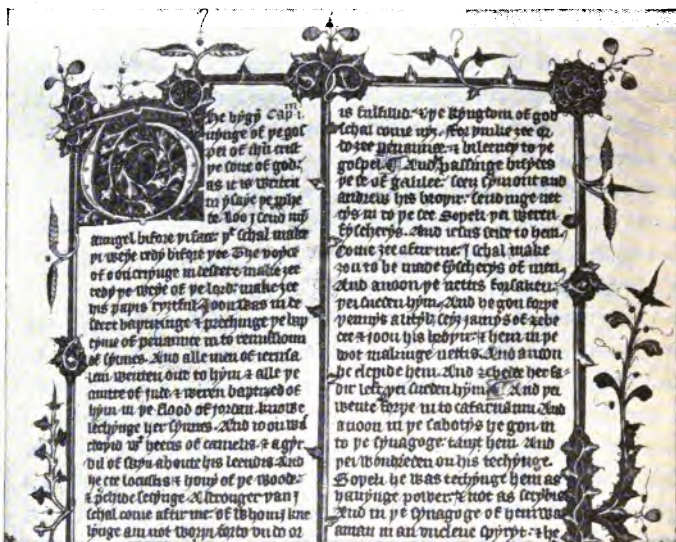 The bygȳ Cap. i.m
nynge of þe gos
pel of ihū crist
þe sone of god:
as it is writen
in ysaye þe p̱phe
te. Loo I send mȳ
aungel bifore þi face: þt schal make
þi weye redy bifore þee. The voyce
of oon cryinge in desert: make zee
redy þe weye of þe lord: make zee
his paþis ryztful. Joon was in de
sert baptizinge & prechinge þe bap
tyme of penaunce in to remissioun
of synnes. And alle men of ierusa
lem wenten out to hym & alle þe
cuntre of jude & weren baptized of
hym in þe flood of jordan: knowe
lechynge her synnes. And joon was
cloþid wt heeris of camelis & a gyr
dil of skyn aboute his leendis: And
he eet locustis & hony of þe woode:
& prechide seiynge. A stronger þan I
schal come aftir me: of whom I kne
lynge am not worþi forto vndo or
is fulfillid: & þe kyngdom of god
schal come niȝ. ffor þinke zee or
do zee penaunce: & bileeueþ to þe
gospel. And passinge bisydes
þe se of galilee: seeȝ symont and
andrew his broþir: sendinge net
tys in to þe see Soþeli þei weren
fyscherys. And iesus seide to hem:
Come zee aftir me: I schal make
zou to be made fyscherys of men.
And anoon þe nettis forsaken:
þei sueden hym. And he gon forþe
þennys a lityl: seyȝ jamys of zebe
dee & joon his broþir: & hem in þe
boot makinge nettis. And anoon
he clepide hem. And zebede her fa
dir left: þei sueden hym. And þei
wente forþe in to cafarnaum And
anoon in þe sabotys he gon in
to þe synagoge: tauȝt hem. And
þei wondreden on his techynge.
Soþeli he was techynge hem as
hauynge power: & not as scrybis
And in þe synagoge of hem was
a man in an vnclene spyryt: & he